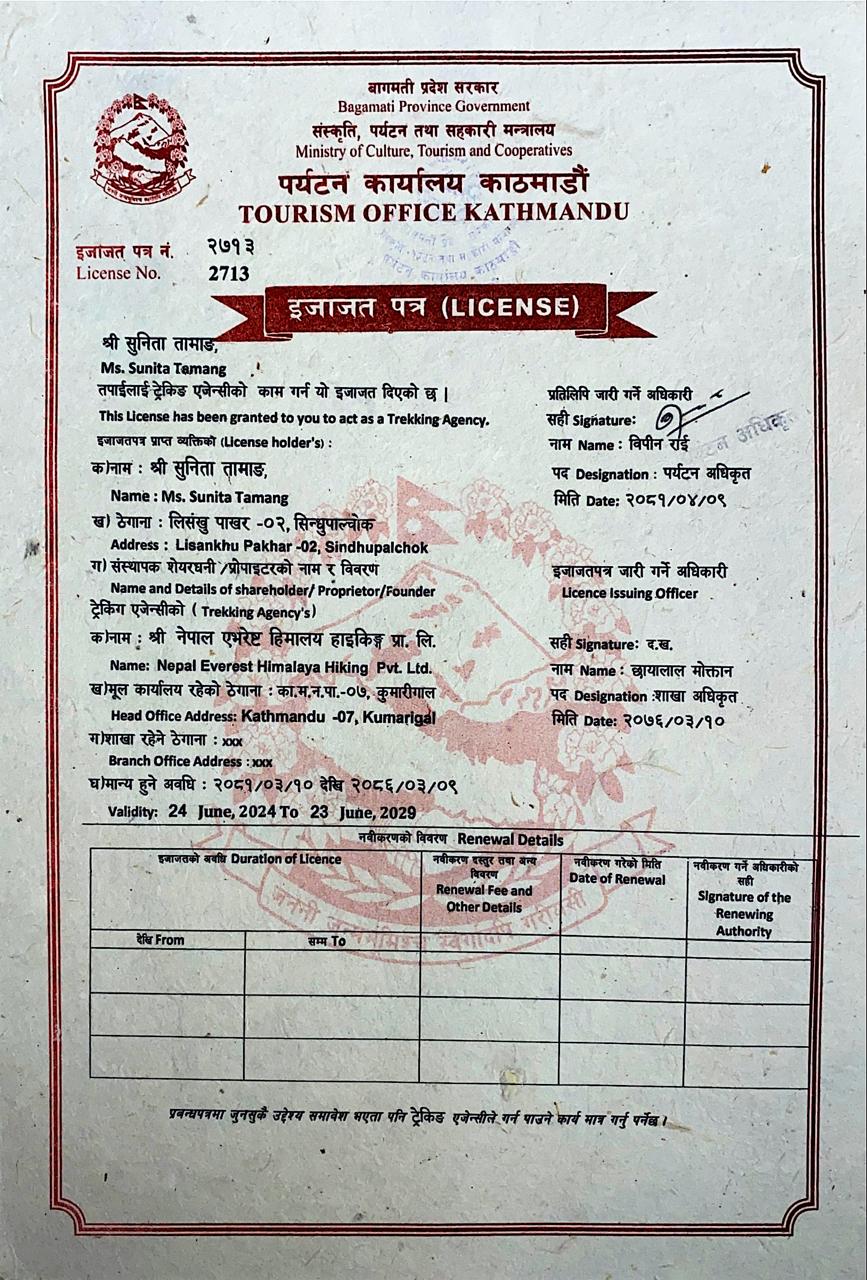 बागमती प्रदेश सरकार
Bagamati Province Government
संस्कृति, पर्यटन तथा सहकारी मन्त्रालय
Ministry of Culture, Tourism and Cooperatives
पर्यटन कार्यालय काठमाडौं
TOURISM OFFICE KATHMANDU
इजाजत पत्र नं. २७१३
License No. 2713
इजाजत पत्र (LICENSE)
श्री सुनिता तामाङ,
Ms. Sunita Tamang
तपाईलाई ट्रेकिङ एजेन्सीको काम गर्न यो इजाजत दिएको छ |
This License has been granted to you to act as a Trekking Agency.
इजाजतपत्र प्राप्त व्यक्तिको (License holder's) :
क)नाम : श्री सुनिता तामाङ,
Name : Ms. Sunita Tamang
ख) ठेगाना : लिसंखु पाखर -०२, सिन्धुपाल्चोक
Address : Lisankhu Pakhar -02, Sindhupalchok
ग) संस्थापक शेयरधनी /प्रोपाइटरको नाम र विवरण
Name and Details of shareholder/ Proprietor/Founder
ट्रेकिंग एजेन्सीको ( Trekking Agency's)
क)नाम : श्री नेपाल एभरेष्ट हिमालय हाइकिङ्ग प्रा. लि.
Name: Nepal Everest Himalaya Hiking Pvt. Ltd.
ख)मूल कार्यालय रहेको ठेगाना : का.म.न.पा.-०७, कुमारीगाल
Head Office Address: Kathmandu -07, Kumarigal
ग)शाखा रहने ठेगाना : xxx
Branch Office Address : xxx
घ)मान्य हुने अवधि : २०८१/०३/१० देखि २०८६/०३/०९
Validity: 24 June, 2024 To 23 June, 2029
प्रतिलिपि जारी गर्ने अधिकारी
सही Signature:
नाम Name : विपीन राई
पद Designation : पर्यटन अधिकृत
मिति Date: २०८१/०४/०९
इजाजतपत्र जारी गर्ने अधिकारी
Licence Issuing Officer
सही Signature: द.ख.
नाम Name : छायालाल मोक्तान
पद Designation :शाखा अधिकृत
मिति Date: २०७६/०३/१०
नवीकरणको विवरण Renewal Details
इजाजतको अवधि Duration of Licence
नवीकरण दस्तुर तथा अन्य
विवरण
Renewal Fee and
Other Details
नवीकरण गरेको मिति
Date of Renewal
नवीकरण गर्ने अधिकारीको
सही
Signature of the
Renewing
Authority
देखि From
सम्म To
जननी जन्मभूमिश्च स्वर्गादपि गरीयसी
प्रबन्धपत्रमा जुनसुकै उद्देश्य समावेश भएता पनि ट्रेकिङ एजेन्सीले गर्न पाउने कार्य मात्र गर्नु पर्नेछ।